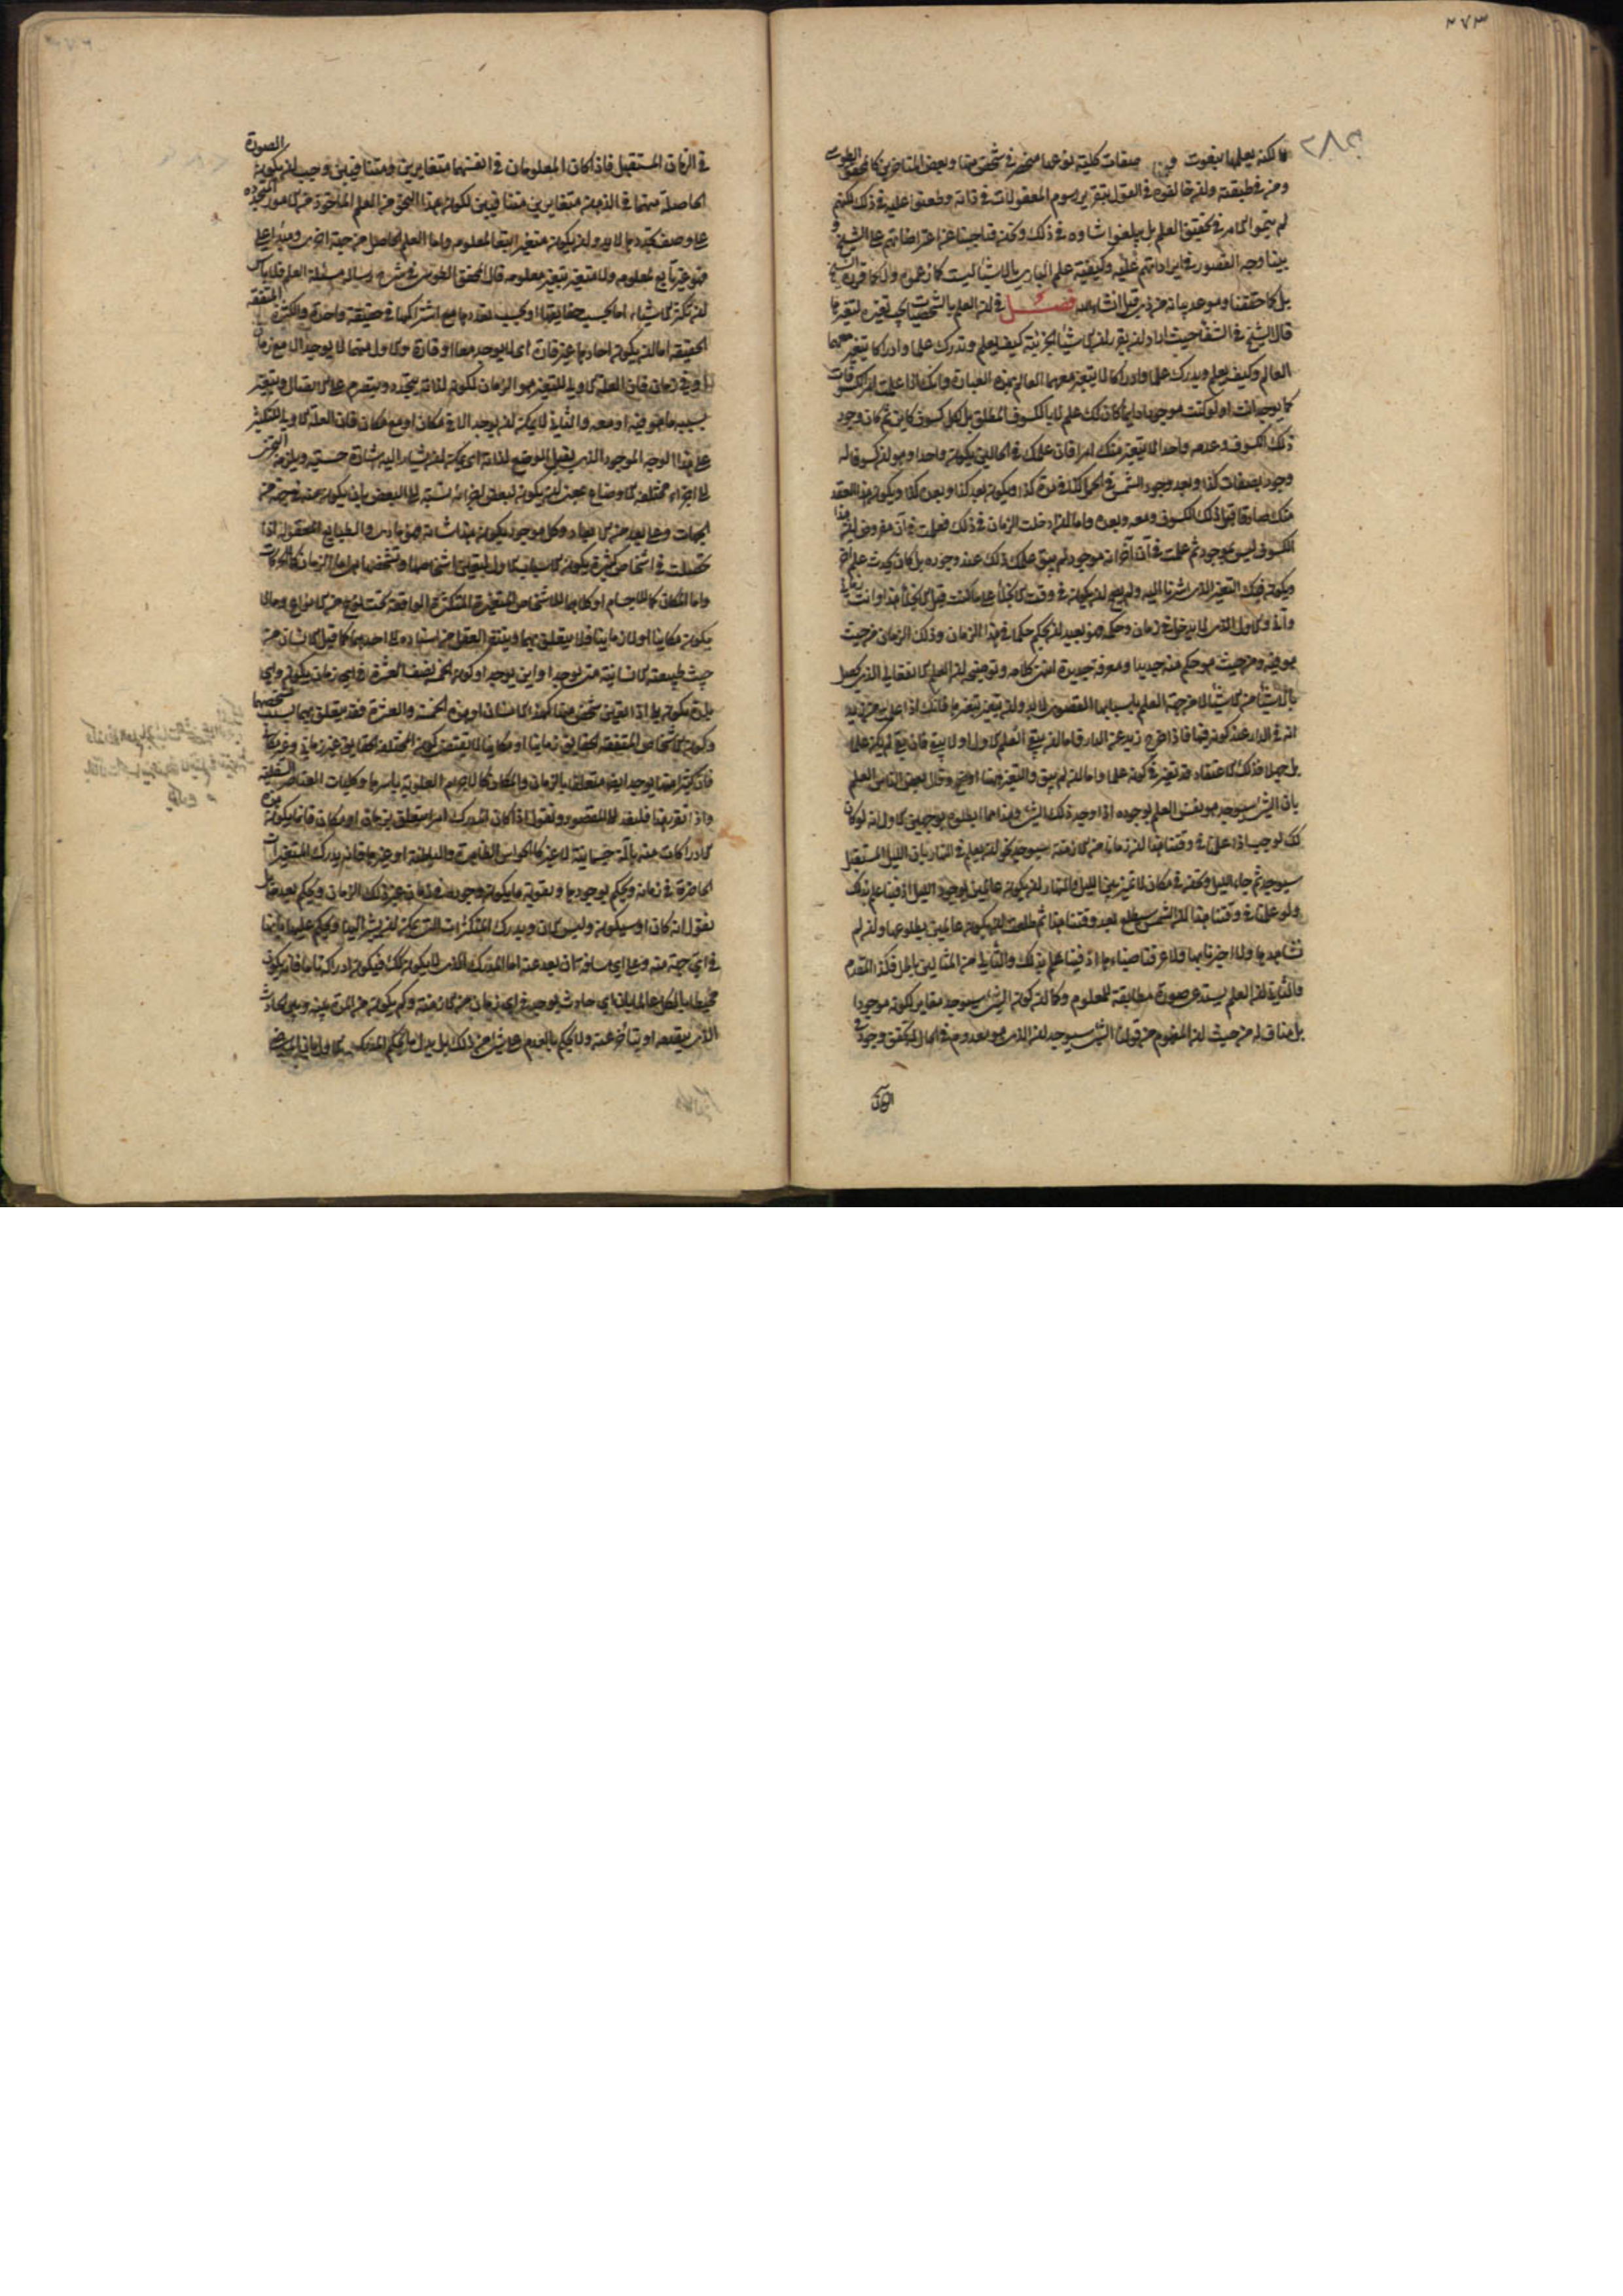 ٢٧٣
٢٨٢
لكنه يعلمها بنعوت وصفات كلية نوعها منحصر في شخص منها وبعض المتاخرين كالمحقق الطوسي
ومن في طبقته وان خالفوه في القول بتقرير رسوم المعقولات في ذاته وطعنوا عليه في ذلك لكنهم
لم يتموا الامر في تحقيق العلم بل بلغوا شاوه في ذلك ونحن قد اجبنا عن اعتراضاتهم على الشيخ و
بينا وجه القصور في ايراداتهم عليه وكيفية علم الباري بالاشياء ليست كما زعموه ولا كما قرره الشيخ
بل كما حققنا وموعد بيانه من ذي قبل انشاء الله فصل في ان العلم بالشخصيات يجب تغيره لتغيرها
قال الشيخ في الشفا حيث اراد ان يقرر ان الاشياء الجزئية كيف يعلم وتدرك علما وادراكا يتغير معهما
العالم وكيف يعلم ويدرك علما وادراكا لا يتغير معهما العالم بهذه العبارة وانك اذا علمت امر الكسوفات
كما يوجد انت او لو كنت موجودا دايما كان لك علم لا بالكسوف المطلق بل لكل كسوف كاين ثم كان وجود
ذلك الكسوف وعدمه واحدا لا يتغير منك امرا فان علمك في الحالين يكون واحدا وهو ان كسوفا له
وجود بصفات كذا وبعد وجود الشمس في الحمل كذا في مدة كذا ويكون بعد كذا وبعده كذا ويكون هذا العقد
منك صادقا قبل ذلك الكسوف ومعه وبعده واما ان ادخلت الزمان في ذلك فعلمت في آن مفروض ان هذا
الكسوف ليس بموجود ثم علمت في آن آخر انه موجود لم يبق علمك ذلك عند وجوده بل كان يحدث علم آخر
ويكون فيك التغير الذي اشرنا اليه ولم يصح ان يكون في وقت الانجلاء على ما كنت قبل الانجلاء هذا وانت زماني
وآني والاول الذي لا يدخل في زمان وحكمه فهو بعيد ان يحكم حكما في هذا الزمان وذلك الزمان من حيث
هو فيه ومن حيث هو حكم منه جديد او معرفة جديدة انتهى كلامه وتوضيحه ان العلم الانفعالي الذي يحصل
بالاشياء من الاشياء لا من جهة العلم باسبابها القصوى لا بد وان يتغير بتغيرها فانك اذا علمت من زيد
انه في الدار عند كونه فيها فاذا خرج زيد عن الدار فاما ان يبقى العلم الاول او لا يبقى فان بقي لم يكن علما
بل جهلا فذلك الاعتقاد قد تغير في كونه علما واما ان لم يبق والتغير ههنا اوضح وقال بعض الناس العلم
بان الشيء سيوجد هو نفس العلم بوجوده اذا وجد ذلك الشيء وهذا مما ابطلوه بوجهين الاول انه لو كان
كذلك لوجب اذا علمنا في وقتنا هذا ان زمانا من الازمنة سيوجد نحو ان يعلم في النهار بان الليل المستقبل
سيوجد ثم جاء الليل ونحن في مكان لا نميز بين الليل والنهار ان يكون عالمين بوجود الليل اذ فينا علم بذلك
ولو علمنا في وقتنا هذا ان الشمس سيطلع بعد وقتنا هذا ثم طلعت ان يكون عالمين بطلوعها وان لم
نشاهدها ولا اخبرنا بها ولا عرفنا ضياءها اذ فينا علم بذلك والتالي من المثالين باطل فكذا المقدم
والثاني ان العلم يستدعي صورة مطابقة للمعلوم وكما ان كون الشيء سيوجد مغاير لكونه موجودا
بل مناف له من حيث ان المفهوم من قولنا الشيء سيوجد ان الذي هو معدوم في الحال يتحقق وجوده في
الزمان
في الزمان المستقبل فاذا كان المعلومان في انفسهما متغايرين ومتنافيين وجب ان يكون الصورة
الحاصلة منهما في الذهن متغايرين متنافيين لكون هذا النحو من العلم الماخوذ من الامور المتجددة
على وصف تجددها لا بد وان يكون متغيرا تبعا لمعلومه واما العلم الحاصل من جهة اخرى ومبدا على
فهو غير تابع لمعلومه ولا متغير بتغير معلومه قال المحقق الطوسي في شرح رسالة مسئلة العلم قال باس
ان تكثر الاشياء اما بحسب حقايقها او بحسب تعددها مع اشتراكها في حقيقة واحدة والكثرة المتفقة
الحقيقة اما ان يكون احادها غير قارة اي لا يوجد معا او قارة والاول منهما لا يوجد الا مع زمان
او في زمان فان العلة الاولى للتغير هو الزمان لكونه لذاته يتجدد ويتصرم على الاتصال ويتغير
بسببه ما هو فيه او معه والثاني لا يمكن ان يوجد الا في مكان او مع مكان فان العلة الاولى للتكثر
على هذا الوجه الموجود الذي يقبل الوضع لذاته اي يمكن ان يشار اليه اشارة حسية ويلزمه التجزي
الى اجزاء مختلفة الاوضاع بمعنى ان يكون لبعض اجزائه نسبة الى البعض بان يكون منه في جهة من
الجهات وعلى بعد من الابعاد وكل موجود يكون هذا شانه فهو مادي والطبايع المعقولة اذا
تحصلت في اشخاص كثيرة يكون الاسباب الاول لتعين اشخاصها وتشخصها هي اما الزمان كالحركات
واما المكان كما للاجسام او كلاهما كما للاشخاص المتغيرة المتكثرة الواقعة تحت نوع من الانواع وما لا
يكون مكانيا ولا زمانيا فلا يتعلق بهما ويتنفر العقل من اسناده الى احدهما كما قيل الانسان من
حيث طبيعته الانسانية متى يوجد او اين يوجد او كون الخمسة نصف العشرة في اي زمان يكون واي
بلدة يكون بلى اذا تعين شخص منها كهذا الانسان او هذه الخمسة والعشرة فقد يتعلق بهما بسبب تشخصهما
وكون الاشخاص المتفقة الحقايق زمانيا او مكانيا لا يقتضي كون المختلفة الحقايق غير زماني وغير مكاني
فان كثيرا منها يوجد ايضا متعلقا بالزمان والمكان كالاجرام العلوية باسرها وكليات العناصر السفلية
واذا تقرر هذا فلنعد الى المقصود ونقول اذا كان المدرك امرا يتعلق بزمان او مكان فانما يكون هذه
الادراكات منه بآلة جسمانية لا غير كالحواس الظاهرة والباطنة او غيرها فانه يدرك المتغيرات
الحاضرة في زمانه ويحكم بوجودها ويفوته ما يكون وجوده في زمان غير ذلك الزمان ويحكم بعدمه بل
يقول انه كان او سيكون وليس الان ويدرك المتكثرات التي يمكن له ان يشير اليها ويحكم عليها بانها
في اي جهة منه وعلى اي مسافة ان بعد عنه اما المدرك الذي لا يكون كذلك فيكون ادراكه تاما فانه يكون
محيطا بالكل عالما بان اي حادث يوجد في اي زمان من الازمنة وكم يكون من المدة بينه وبين الحادث
الذي يتقدمه او يتاخر عنه ولا يحكم بالعدم على شيء من ذلك بل بدل ما يحكم المدرك الاول بان الماضي